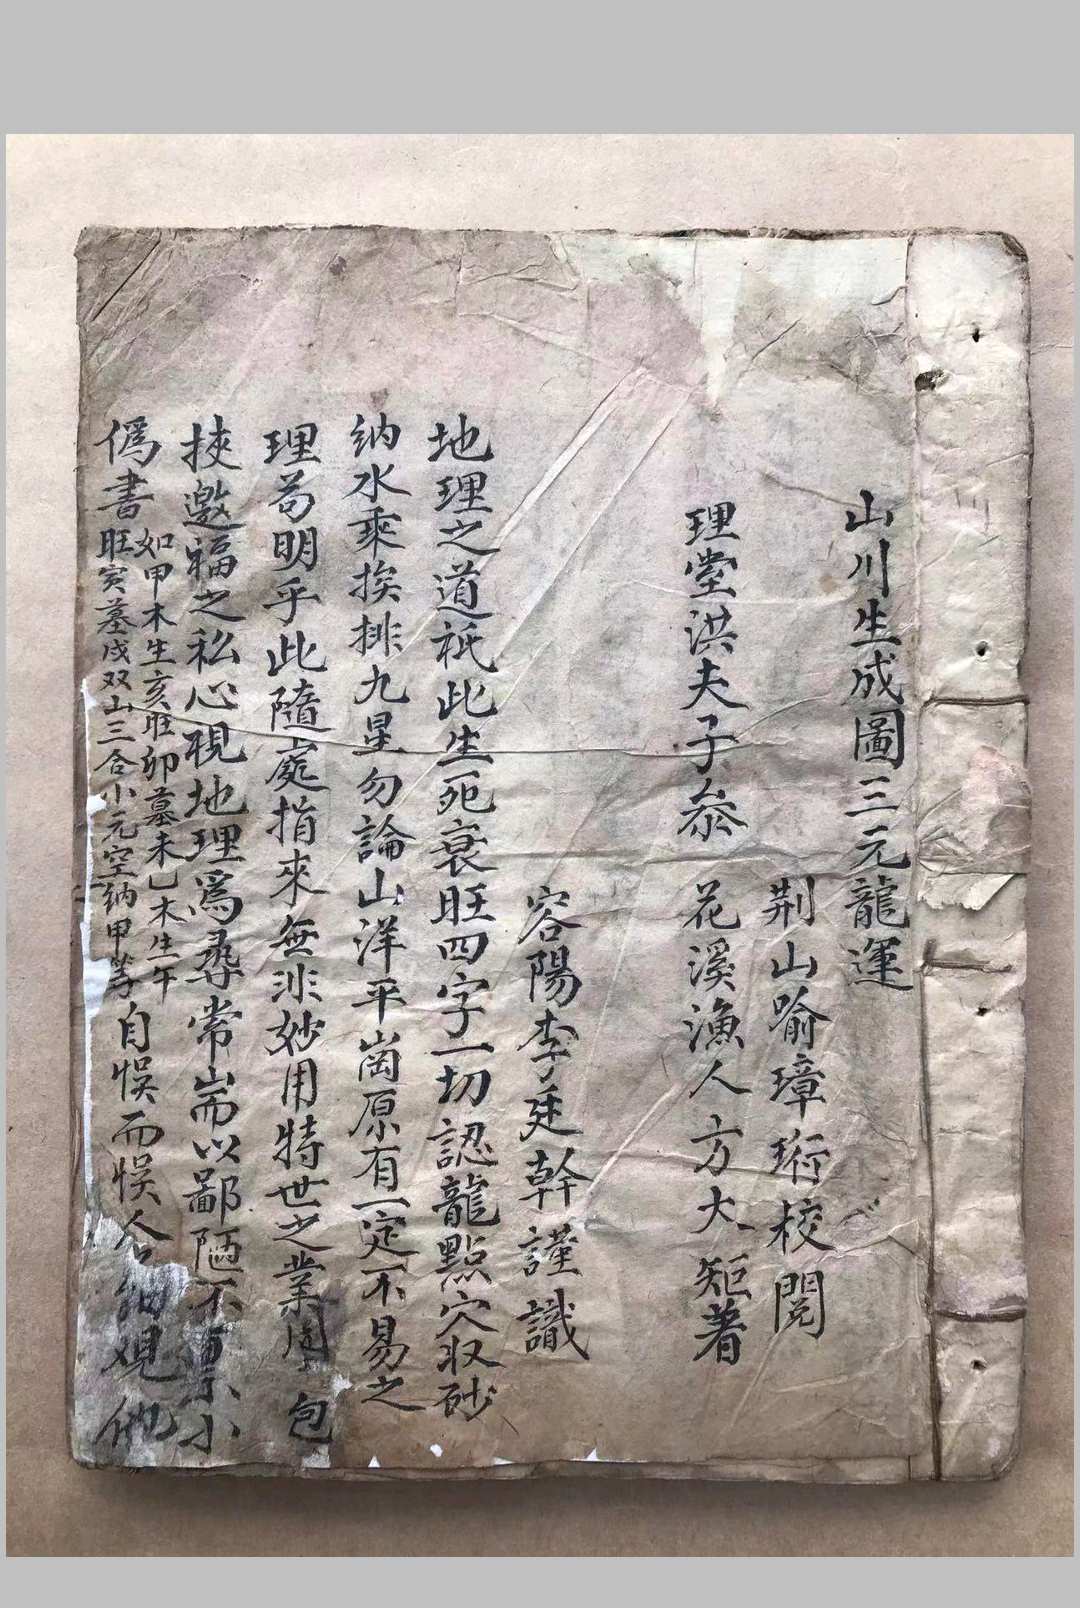 山川生成圖三元龍運
荆山喻璋珩校閱
理堂洪夫子叅 花溪漁人方大矩著
容陽李廷幹謹識
地理之道祇此生死衰旺四字一切認龍點穴收砂
納水乘挨排九星勿論山洋平崗原有一定不易之
理苟明乎此隨處指來無非妙用特世之業 包
挾邀福之私心視地理爲尋常耑以鄙陋不 小
僞書
如甲木生亥旺卯墓未乙木生午
旺寅墓戌双山三合小元空納甲等
自悞而悞人 觀他